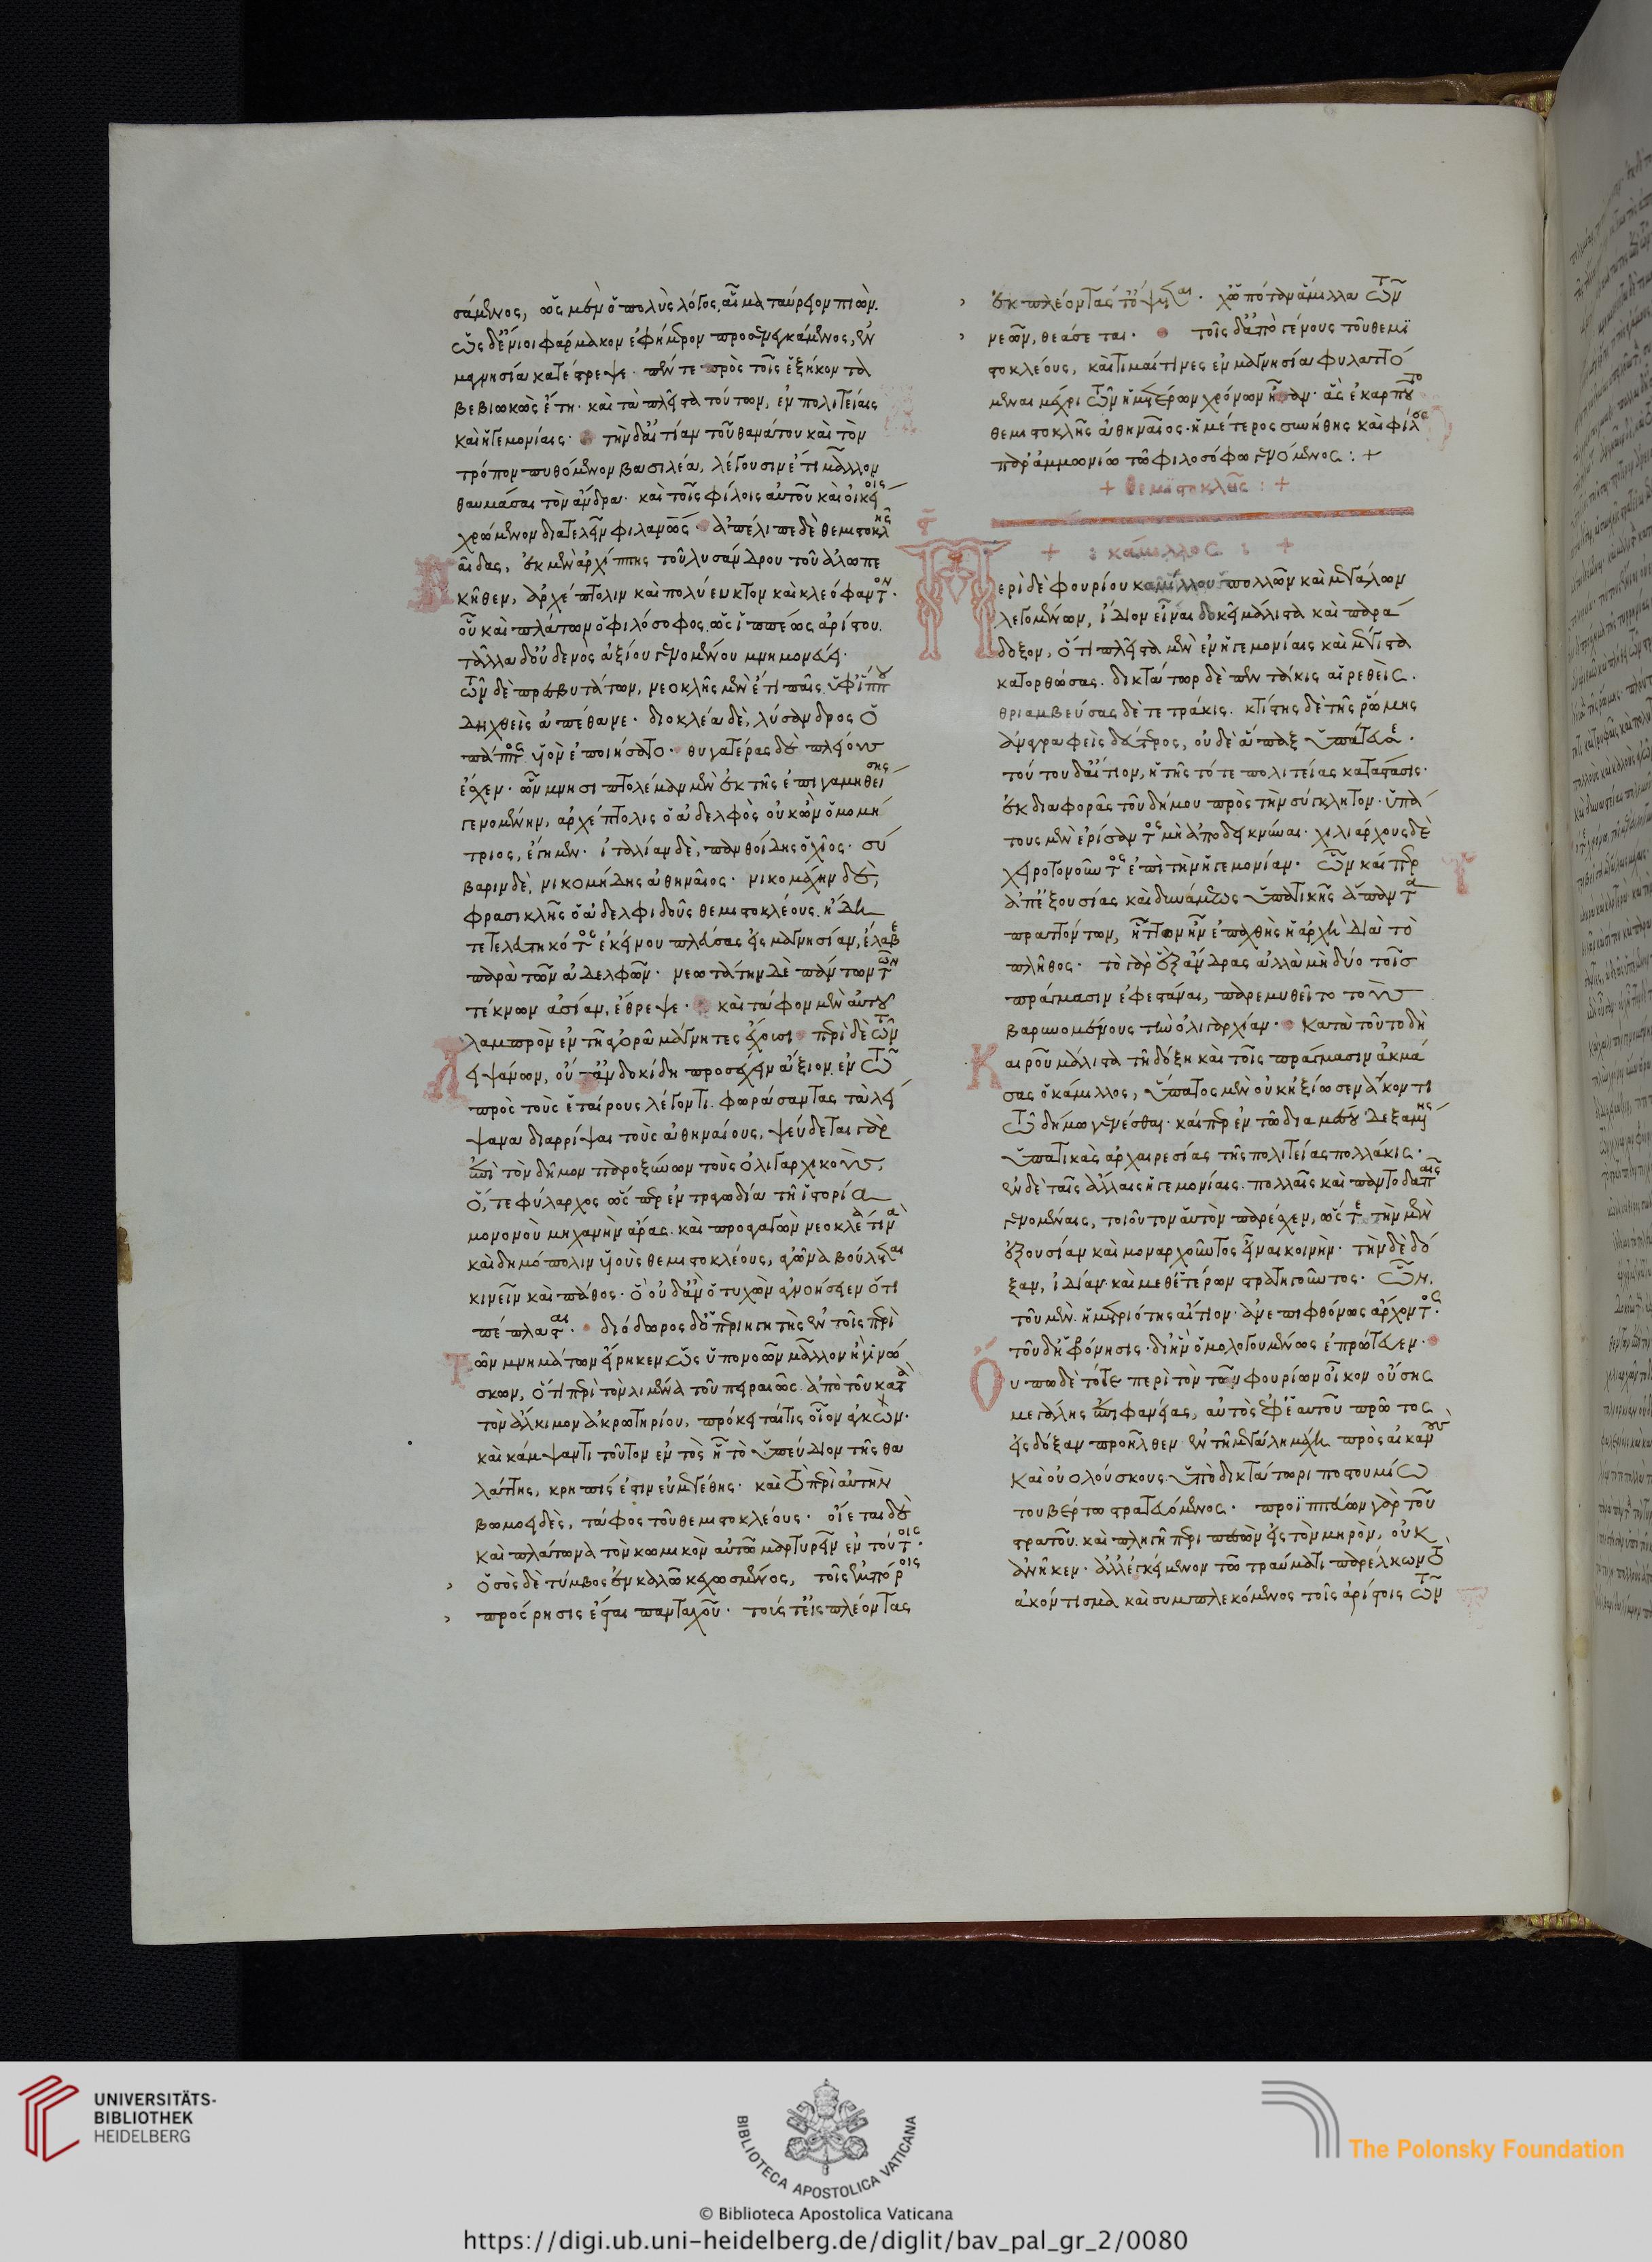 σάμενος, ὡς μὲν ὁ πολὺς λόγος, αἷμα ταύρειον πιών.
ὡς δ' ἔνιοι φάρμακον ἐφήμερον προσενεγκάμενος, ἐν
μαγνησία κατέστρεψε· πέντε πρὸς τοῖς ἑξήκοντα
βεβιωκὼς ἔτη· καὶ τὰ πλεῖστα τούτων, ἐν πολιτείαις
καὶ ἡγεμονίαις· τὴν δ' αἰτίαν τοῦ θανάτου καὶ τὸν
τρόπον πυθόμενον βασιλέα, λέγουσιν ἔτι μᾶλλον
θαυμάσαι τὸν ἄνδρα· καὶ τοῖς φίλοις αὐτοῦ καὶ οἰκείοις
χρώμενον διατελεῖν φιλανθρώπως· ἀπέλιπε δὲ θεμιστοκλῆς
παῖδας, ἐκ μὲν ἀρχίππης τοῦ λυσάνδρου τοῦ ἀλωπε
κῆθεν, ἀρχέπτολιν καὶ πολύευκτον καὶ κλεόφαντον·
οὗ καὶ πλάτων ὁ φιλόσοφος ὡς ἱππέως ἀρίστου.
τἄλλα δ' οὐδενὸς ἀξίου γενομένου μνημονεύει·
τῶν δὲ πρεσβυτάτων, νεοκλῆς μὲν ἔτι παῖς ὑφ' ἵππου
δηχθεὶς ἀπέθανε· διοκλέα δὲ, λύσανδρος ὁ
πάππος υἱὸν ἐποιήσατο· θυγατέρας δὲ πλείους
ἔσχεν· ὧν μνησιπτολέμαν μὲν ἐκ τῆς ἐπιγαμηθείσης
γενομένην, ἀρχέπτολις ὁ ἀδελφὸς οὐκ ὢν ὁμομή
τριος, ἔγημεν· ἰταλίαν δὲ, πανθοίδης ὁ χῖος· σύ
βαριν δὲ, νικομήδης ἀθηναῖος· νικομάχην δὲ,
φρασικλῆς ὁ ἀδελφιδοῦς θεμιστοκλέους, ἤδη
τετελευτηκότος ἐκείνου πλεύσας εἰς μαγνησίαν, ἔλαβε
παρὰ τῶν ἀδελφῶν· νεωτάτην δὲ πάντων τῶν
τέκνων ἀσίαν, ἔθρεψε· καὶ τάφον μὲν αὐτοῦ
λαμπρὸν ἐν τῇ ἀγορᾷ μάγνητες ἔχουσι· περὶ δὲ τῶν
λειψάνων, οὔτ' ἀνδοκίδη προσέχειν ἄξιον ἐν τῷ
πρὸς τοὺς ἑταίρους λέγοντι· φωράσαντας τὰ λεί
ψανα διαρρίψαι τοὺς ἀθηναίους, ψεύδεται γὰρ
ἐπὶ τὸν δῆμον παροξύνων τοὺς ὀλιγαρχικοὺς,
ὅ, τε φύλαρχος ὥσπερ ἐν τραγωδία τῇ ἱστορία
μονονοὺ μηχανὴν ἄρας, καὶ προαγαγὼν νεοκλέα τινὰ
καὶ δημόπολιν υἱοὺς θεμιστοκλέους, ἀγῶνα βούλεται
κινεῖν καὶ πάθος· ὃ οὐδ' ἂν ὁ τυχὼν ἀγνοήσειεν ὅτι
πέπλασται· διόδωρος δ' ὁ περιηγητὴς ἐν τοῖς περὶ
τῶν μνημάτων εἴρηκεν ὡς ὑπονοῶν μᾶλλον ἢ γινώ
σκων, ὅτι περὶ τὸν λιμένα τοῦ πειραιῶς ἀπὸ τοῦ κατὰ
τὸν ἄλκιμον ἀκρωτηρίου, πρόκειταί τις οἷον ἀγκών·
καὶ κάμψαντι τοῦτον ἐντὸς ᾗ τὸ ὑπεύδιον τῆς θα
λάττης, κρηπίς ἐστιν εὐμεγέθης· καὶ τὸ περὶ αὐτὴν
βωμοειδὲς, τάφος τοῦ θεμιστοκλέους· οἴεται δὲ
καὶ πλάτωνα τὸν κωμικὸν αὐτῷ μαρτυρεῖν ἐν τούτοις·
ὁ σὸς δὲ τύμβος ἐν καλῷ κεχωσμένος, τοῖς ἐμπόροις
πρόσρησις ἔσται πανταχοῦ· τούς τ' εἰσπλέοντας
ἐκπλέοντάς τ' ὄψεται· χὠπόταν ἅμιλλα τῶν
νεῶν, θεάσεται· τοῖς δ' ἀπὸ γένους τοῦ θεμι
στοκλέους, καὶ τιμαί τινες ἐν μαγνησία φυλαττό
μεναι μέχρι τῶν ἡμετέρων χρόνων ἦσαν· ἃς ἐκαρποῦτο
θεμιστοκλῆς ἀθηναῖος· ἡμέτερος συνήθης καὶ φίλος
παρ' ἀμμωνίω τῷ φιλοσόφω γενόμενος : +
+ θεμιστοκλῆς : +
+ : κάμιλλος : +
Περὶ δὲ φουρίου καμίλλου πολλῶν καὶ μεγάλων
λεγομένων, ἴδιον εἶναι δοκεῖ μάλιστα καὶ παρά
δοξον, ὅτι πλεῖστα μὲν ἐν ἡγεμονίαις καὶ μέγιστα
κατορθώσας. δικτάτωρ δὲ πεντάκις αἱρεθεὶς.
θριαμβεύσας δὲ τετράκις. κτίστης δὲ τῆς ῥώμης
ἀναγραφεὶς δεύτερος, οὐδὲ ἅπαξ ὑπάτευσε·
τούτου δ' αἴτιον, ἡ τῆς τότε πολιτείας κατάστασις·
ἐκ διαφορᾶς τοῦ δήμου πρὸς τὴν σύγκλητον· ὑπά
τους μὲν ἐρίσαντος μὴ ἀποδεικνύναι· χιλιάρχους δὲ
χειροτονοῦντος ἐπὶ τὴν ἡγεμονίαν· ὧν καίπερ
ἀπ' ἐξουσίας καὶ δυνάμεως ὑπατικῆς ἅπαντα
πραττόντων, ἧττον ἦν ἐπαχθὴς ἡ ἀρχὴ διὰ τὸ
πλῆθος· τὸ γὰρ ἓξ ἄνδρας ἀλλὰ μὴ δύο τοῖς
πράγμασιν ἐφεστάναι, παρεμυθεῖτο τοὺς
βαρυνομένους τὴν ὀλιγαρχίαν· κατὰ τοῦτο δὴ
Καιροῦ μάλιστα τῇ δόξη καὶ τοῖς πράγμασιν ἀκμά
σας ὁ κάμιλλος, ὕπατος μὲν οὐκ ἠξίωσεν ἄκοντι
τῷ δήμω γενέσθαι· καίπερ ἐν τῷ διὰ μέσου δεξαμένης
ὑπατικὰς ἀρχαιρεσίας τῆς πολιτείας πολλάκις·
ἐν δὲ ταῖς ἄλλαις ἡγεμονίαις πολλαῖς καὶ παντοδαπαῖς
γενομέναις, τοιοῦτον αὑτὸν παρέσχεν, ὥστε τὴν μὲν
ἐξουσίαν καὶ μοναρχοῦντος εἶναι κοινὴν· τὴν δὲ δό
ξαν, ἰδίαν καὶ μεθ' ἑτέρων στρατηγοῦντος· ὧν.
τοῦ μὲν ἡ μετριότης αἴτιον· ἀνεπιφθόνως ἄρχοντος·
τοῦ δ' ἡ φρόνησις· δι' ἣν ὁμολογουμένως ἐπρώτευεν·
Οὔπω δὲ τότε περὶ τὸν τῶν φουρίων οἶκον οὔσης
μεγάλης ἐπιφανείας, αὐτὸς ἀφ' ἑαυτοῦ πρῶτος
εἰς δόξαν προῆλθεν ἐν τῇ μεγάλη μάχη πρὸς αἰκανοὺς
καὶ οὐολούσκους ὑπὸ δικτάτωρι ποστουμίω
τουβέρτω στρατευόμενος· προϊππεύων γὰρ τοῦ
στρατοῦ καὶ πληγῇ περιπεσὼν εἰς τὸν μηρὸν, οὐκ
ἀνῆκεν· ἀλλ' ἐγκείμενον τῷ τραύματι παρέλκων τὸ
ἀκόντισμα καὶ συμπλεκόμενος τοῖς ἀρίστοις τῶν
UNIVERSITÄTS-
BIBLIOTHEK
HEIDELBERG
BIBLIOTECA APOSTOLICA VATICANA
The Polonsky Foundation
© Biblioteca Apostolica Vaticana
https://digi.ub.uni-heidelberg.de/diglit/bav_pal_gr_2/0080